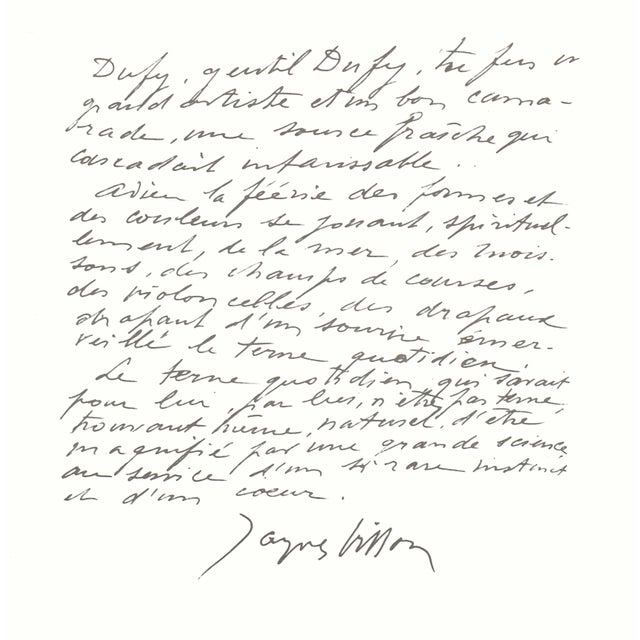 Dufy, gentil Dufy, tu fus un
grand artiste et un bon cama-
rade, une source fraîche qui
cascadait intarissable..
Adieu la féérie des formes et
des couleurs se jouant, spirituel-
lement, de la mer, des mois-
sons, des champs de courses,
des violoncelles, des drapeaux
drapant d'un sourire émer-
veillé le terne quotidien.
Le terne quotidien qui savait
pour lui, par lui, n'être pas terne,
trouvant même, naturel, d'être
magnifié par une grande science
au service d'un si rare instinct
et d'un coeur.
Jacques Villon